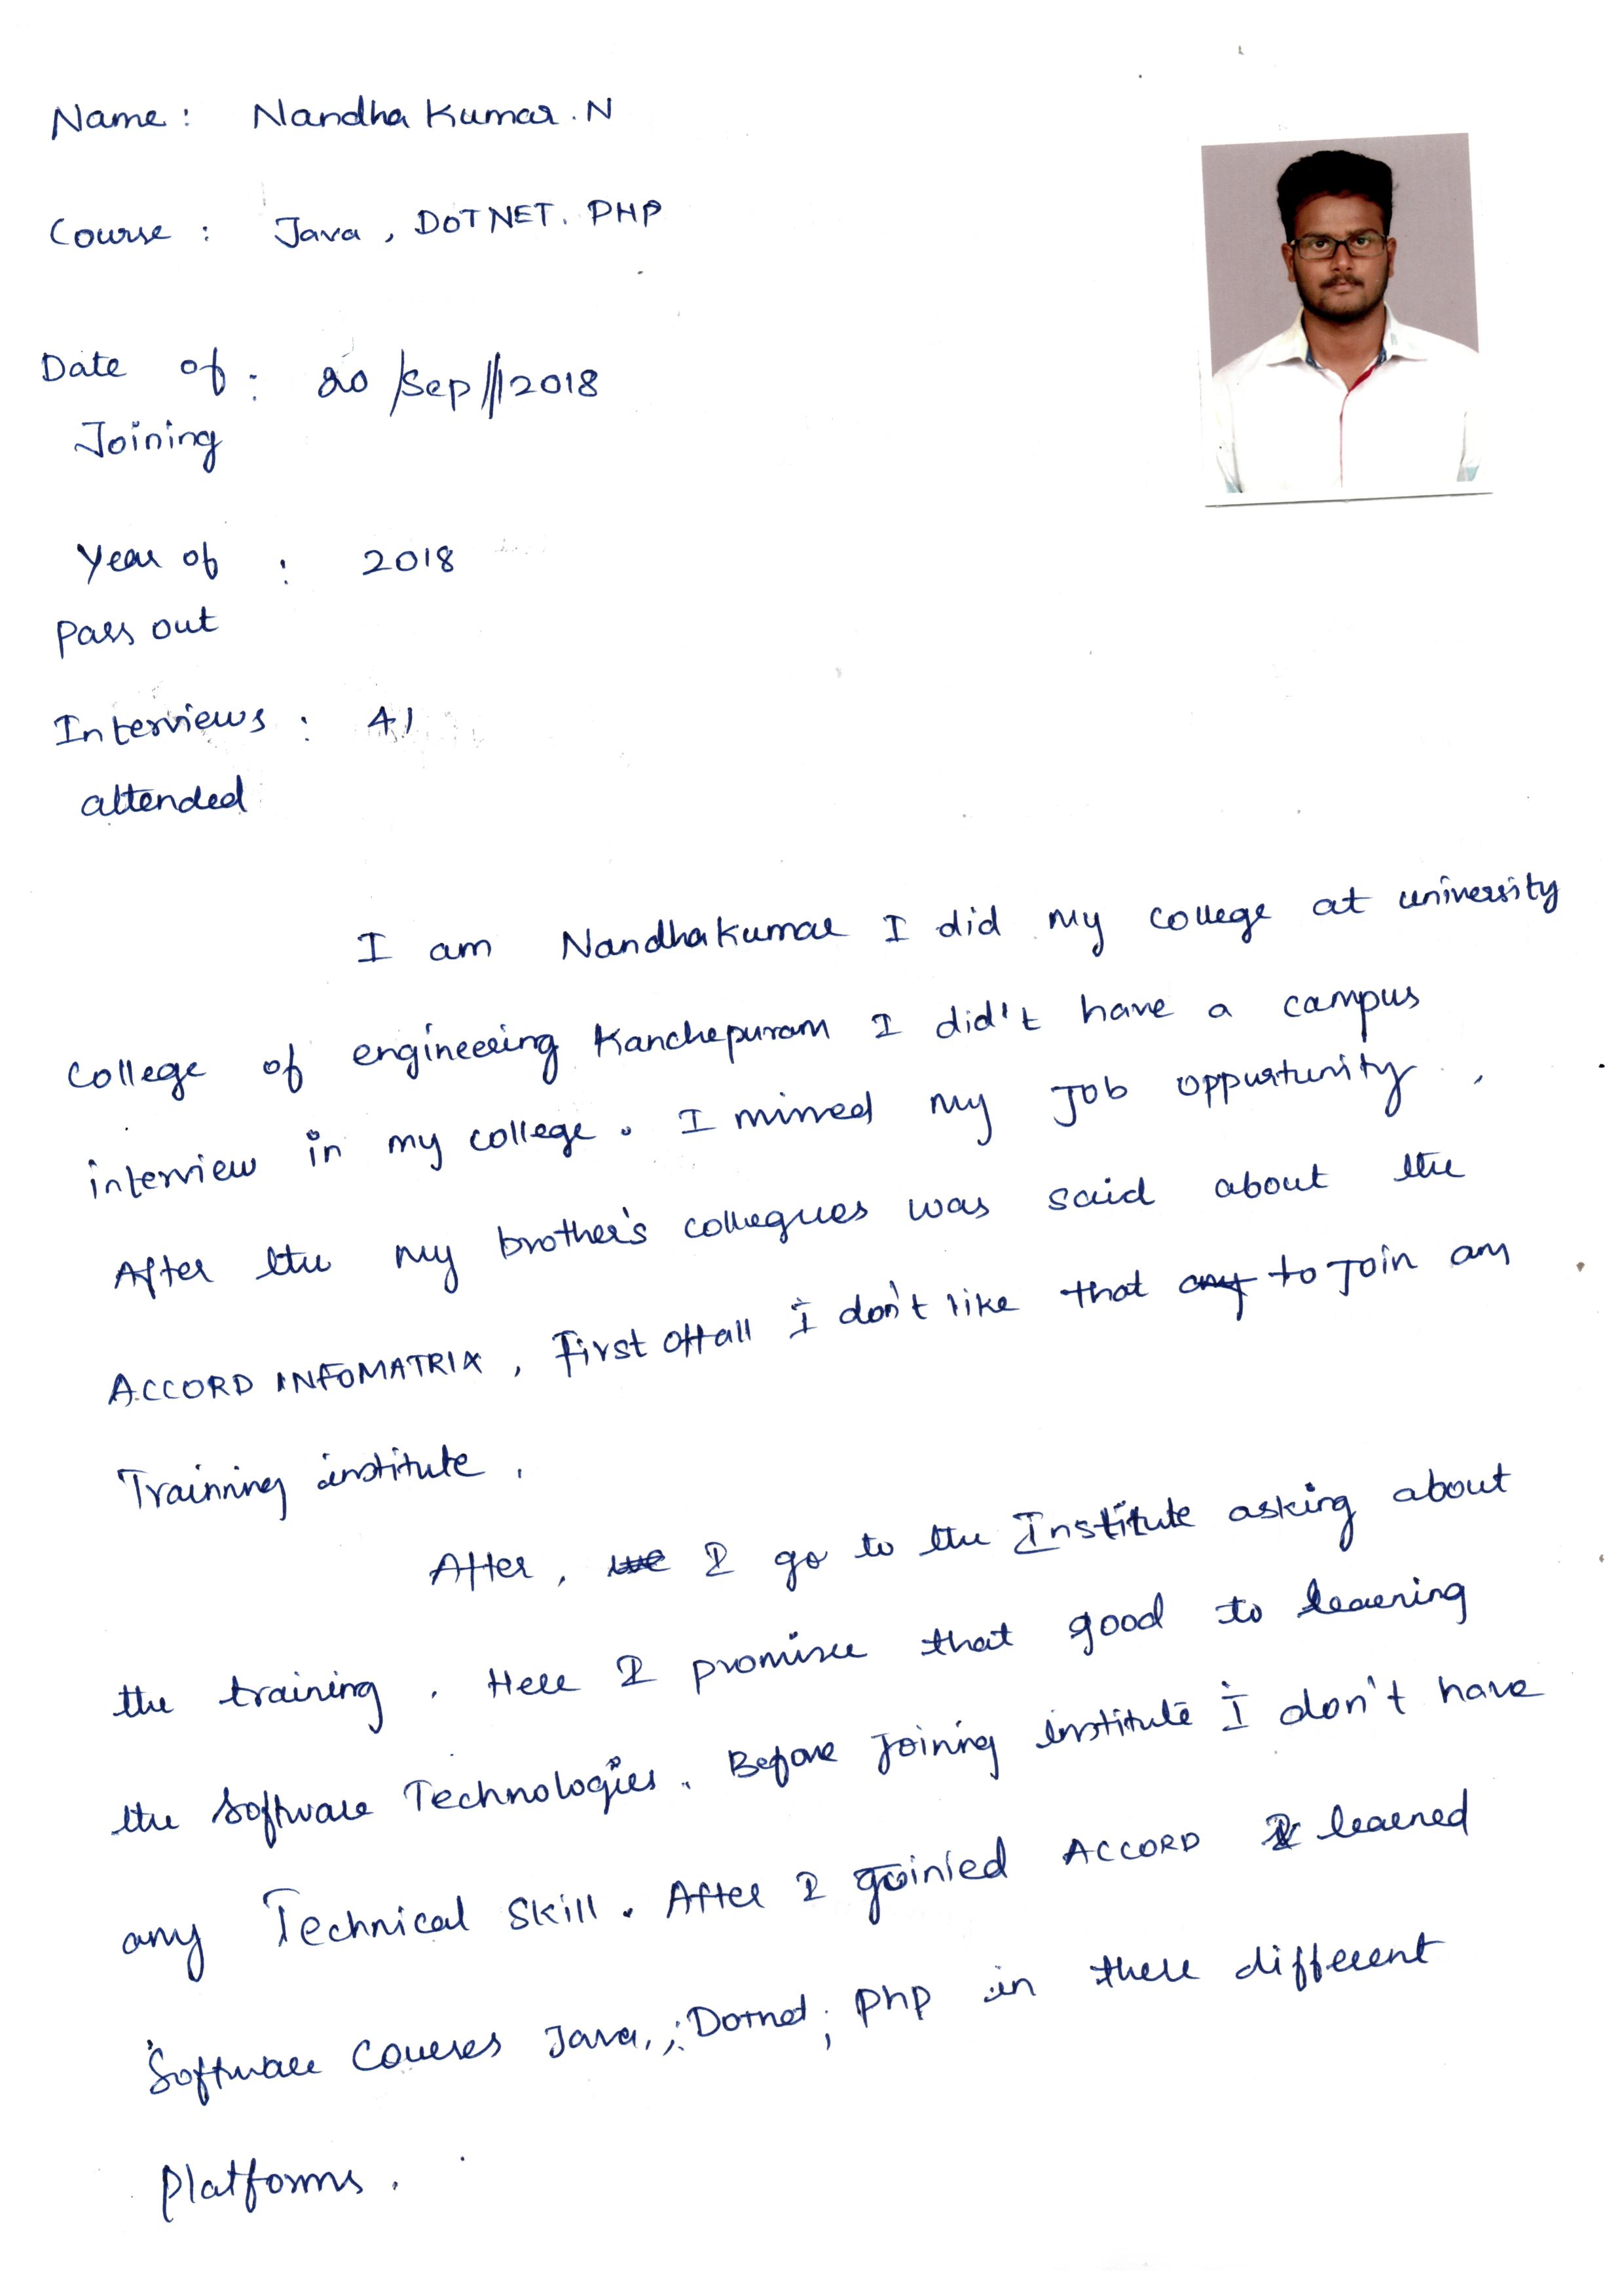 Name : Nandha Kumar . N
Course : Java , DOTNET. PHP
Date of : 20 /Sep//2018
Joining
Year of : 2018
Pass out
Interviews : 41
attended
I am Nandhakumar I did my college at university
college of engineering Kanchepuram I did't have a campus
interview in my college . I missed my Job oppurtunity .
After the my brother's collegues was said about the
ACCORD INFOMATRIX , First offall I don't like that to Join any
Trainning institute .
After , I go to the Institute asking about
the training . Here I promise that good to learning
the software Technologies . Before Joining institute I don't have
any Technical skill . After I joinied ACCORD I learned
Software Courses Java, ; Dotnet ; Php in these different
Platforms .